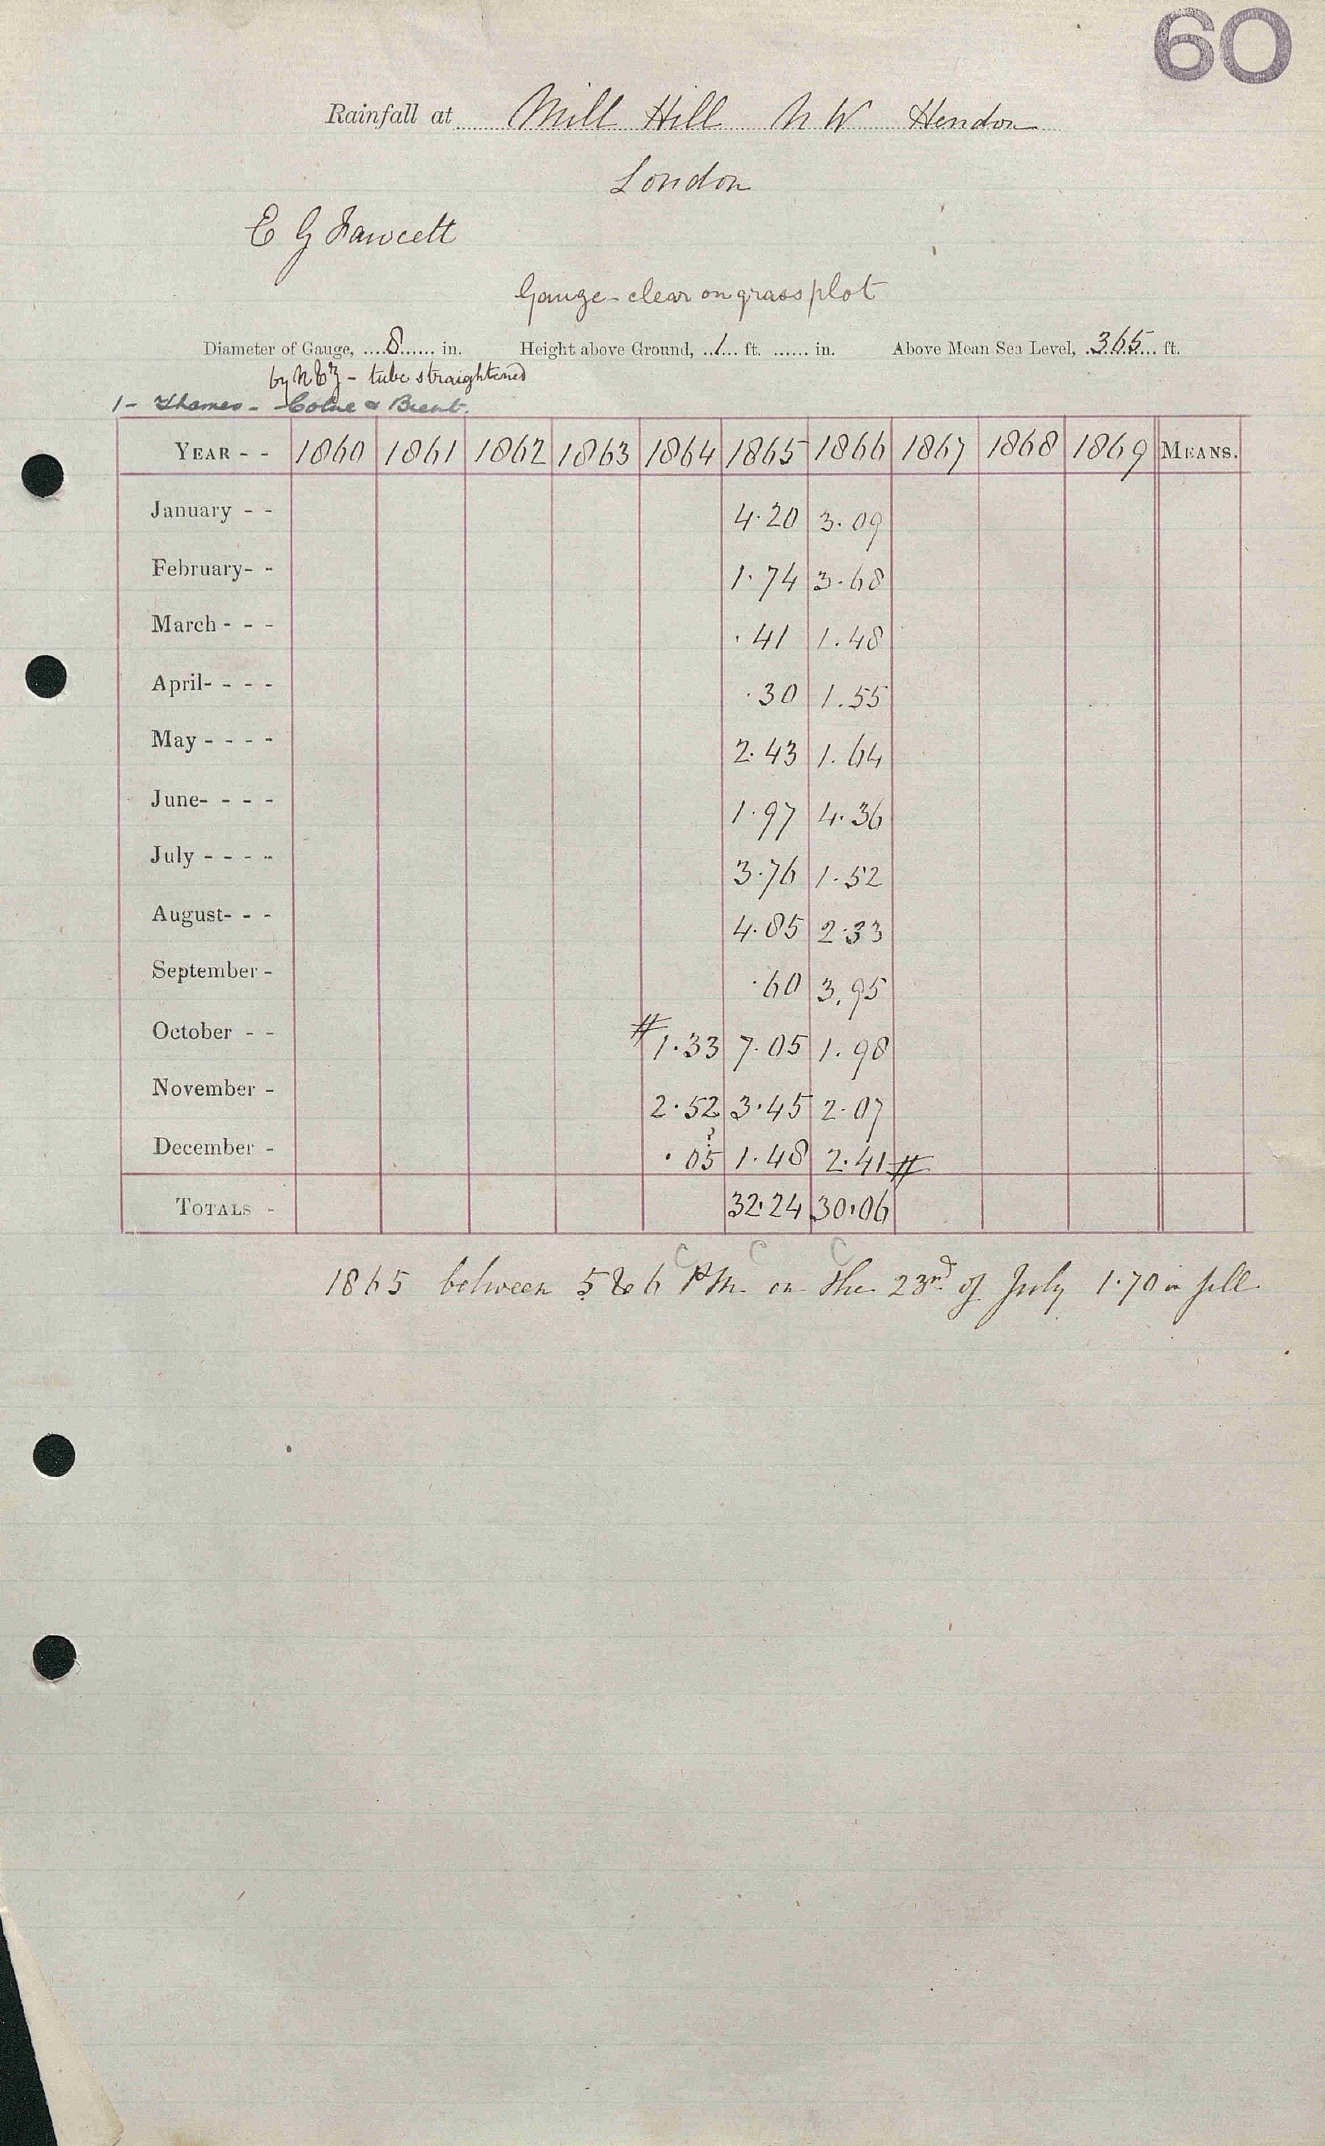 60
Rainfall at Mill Hill N W Hendon
London
E G Fawcett
Gauge - clear on grass plot
Diameter of Gauge, 8 in. Height above Ground, 1 ft. in. Above Mean Sea Level, 365 ft.
by - tube straightened
1 - Thames - Colne & Brent.
YEAR - - 1860 1861 1862 1863 1864 1865 1866 1867 1868 1869 MEANS.
January - - 4.20 3.09
February - - 1.74 3.68
March - - - .41 1.48
April - - - - .30 1.55
May - - - - 2.43 1.64
June - - - - 1.97 4.36
July - - - - 3.76 1.52
August - - - 4.85 2.33
September - .60 3.95
October - - # 1.33 7.05 1.98
November - 2.52 3.45 2.07
December - .05 ? 1.48 2.41 #
TOTALS - 32.24 30.06
C C C
1865 between 5 & 6 P.M. on the 23rd of July 1.70 in fell